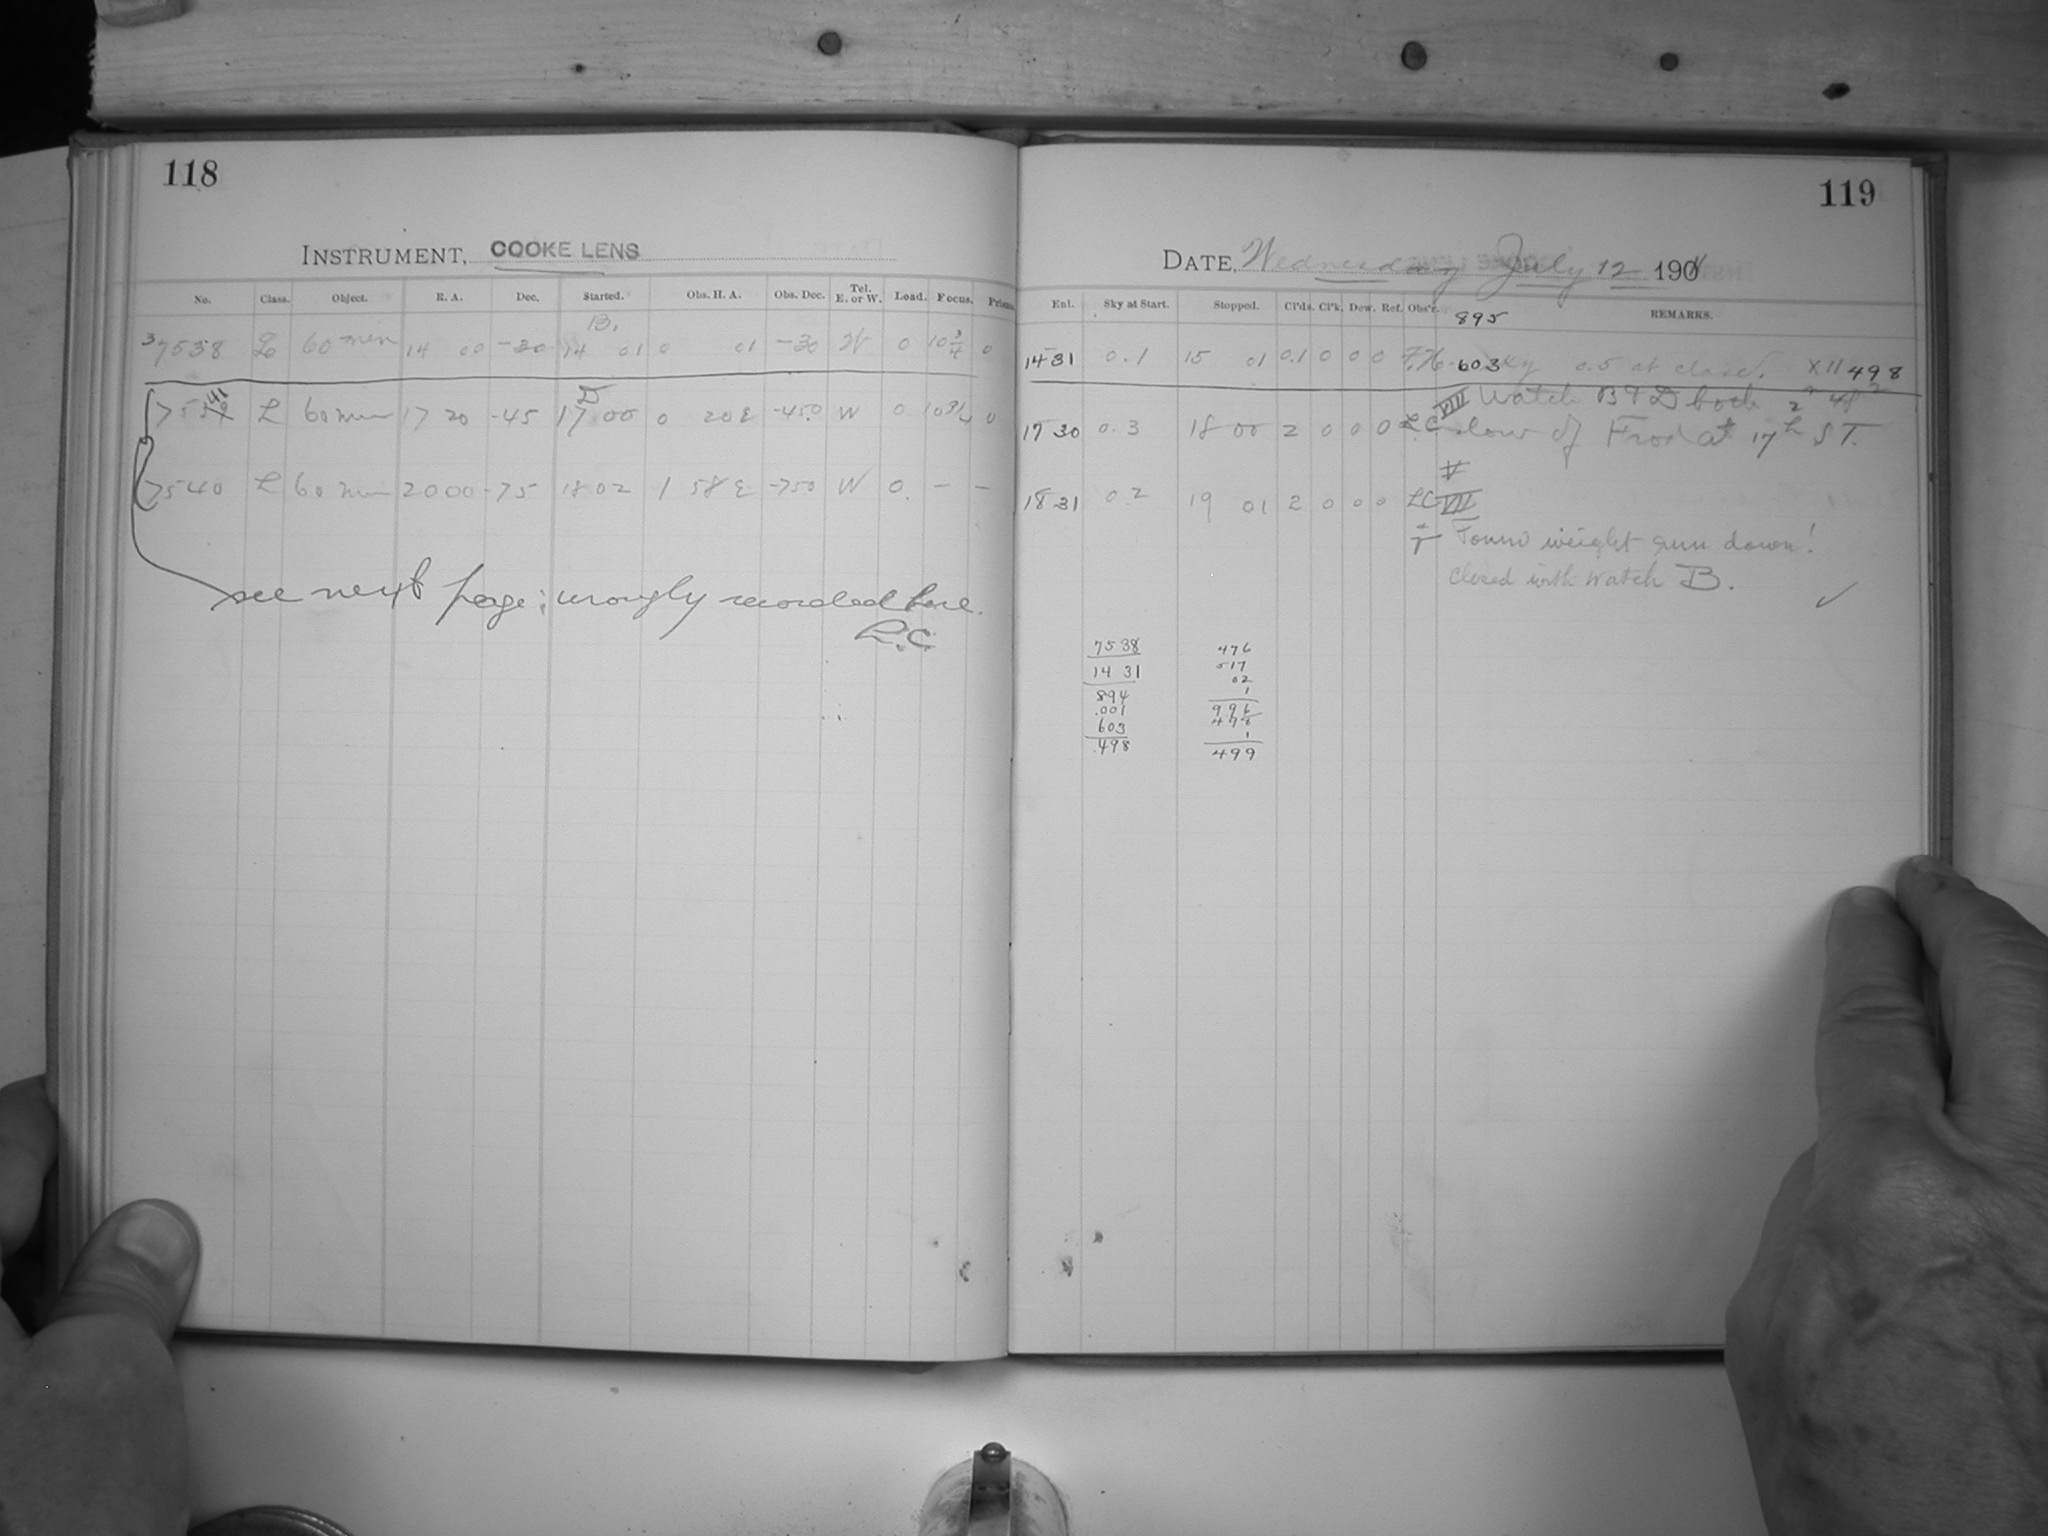 118
INSTRUMENT, COOKE LENS
No. Class. Object. R. A. Dec. Started. Obs. H. A. Obs. Dec. Tel. E. or W. Load. Focus. Prisms
B.
37538 L 60 min 14 00 -30 14 01 0 01 -30 W 0 10 3/4 0
41
D
7539 L 60 min 17 20 -45 17 00 0 20 E -45.0 W 0 10 3/4 0
7540 L 60 min 20 00 -75 18 02 1 58 E -75.0 W 0. — —
see next page; wrongly recorded here.
L.C.
119
DATE, Wednesday July 12 190
Enl. Sky at Start. Stopped. Cl'ds. Cl'k. Dew. Ref. Obs'r. REMARKS.
895
14 31 0.1 15 01 0.1 0 0 0 603 0.5 at close. XII 498
VIII Watch B & D both
17 30 0.3 18 00 2 0 0 0 LC slow of Frod at 17h ST.
V
18 31 0.2 19 01 2 0 0 0 LC VII
Found weight run down!
closed with watch B.
7538 476
14 31 017
02
894 1
.001 996
603 476
1
.498 499